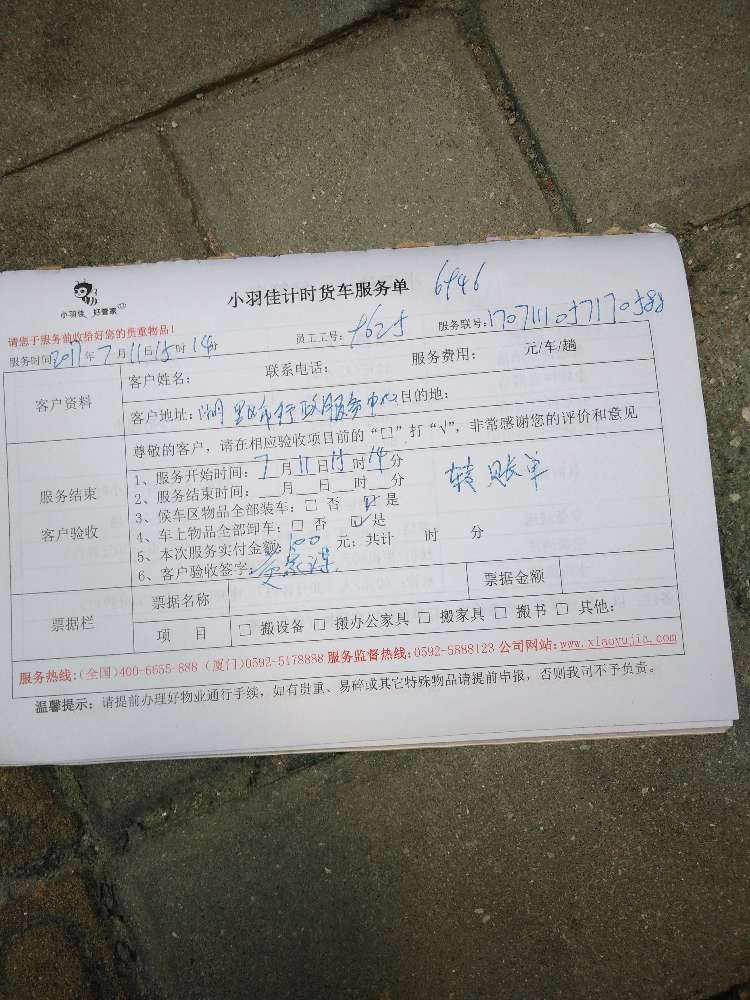 小羽佳计时货车服务单 6946
小羽佳 好管家
请您于服务前收拾好您的贵重物品!
服务时间2017年7月11日15时14分 员工工号: 9625 服务联号:170711105717058
客户资料
客户姓名: 联系电话: 服务费用: 元/车/趟
客户地址:湖里 行政服务中心 目的地:
服务结束
客户验收
尊敬的客户,请在相应验收项目前的“□”打“√”,非常感谢您的评价和意见
1、服务开始时间:7月11日15时14分
2、服务结束时间:__月__日__时__分
3、候车区物品全部装车:□ 否 ☑ 是
4、车上物品全部卸车:□ 否 ☑ 是
5、本次服务实付金额:100 元;共计 时 分
6、客户验收签字:
转账单
票据栏
票据名称 票据金额
项 目 □ 搬设备 □ 搬办公家具 □ 搬家具 □ 搬书 □ 其他:
服务热线:(全国)400-6655-888 (厦门)0592-5178888 服务监督热线:0592-5888123 公司网站:www.xiaoyujia.com
温馨提示:请提前办理好物业通行手续,如有贵重、易碎或其它特殊物品请提前申报,否则我司不予负责。